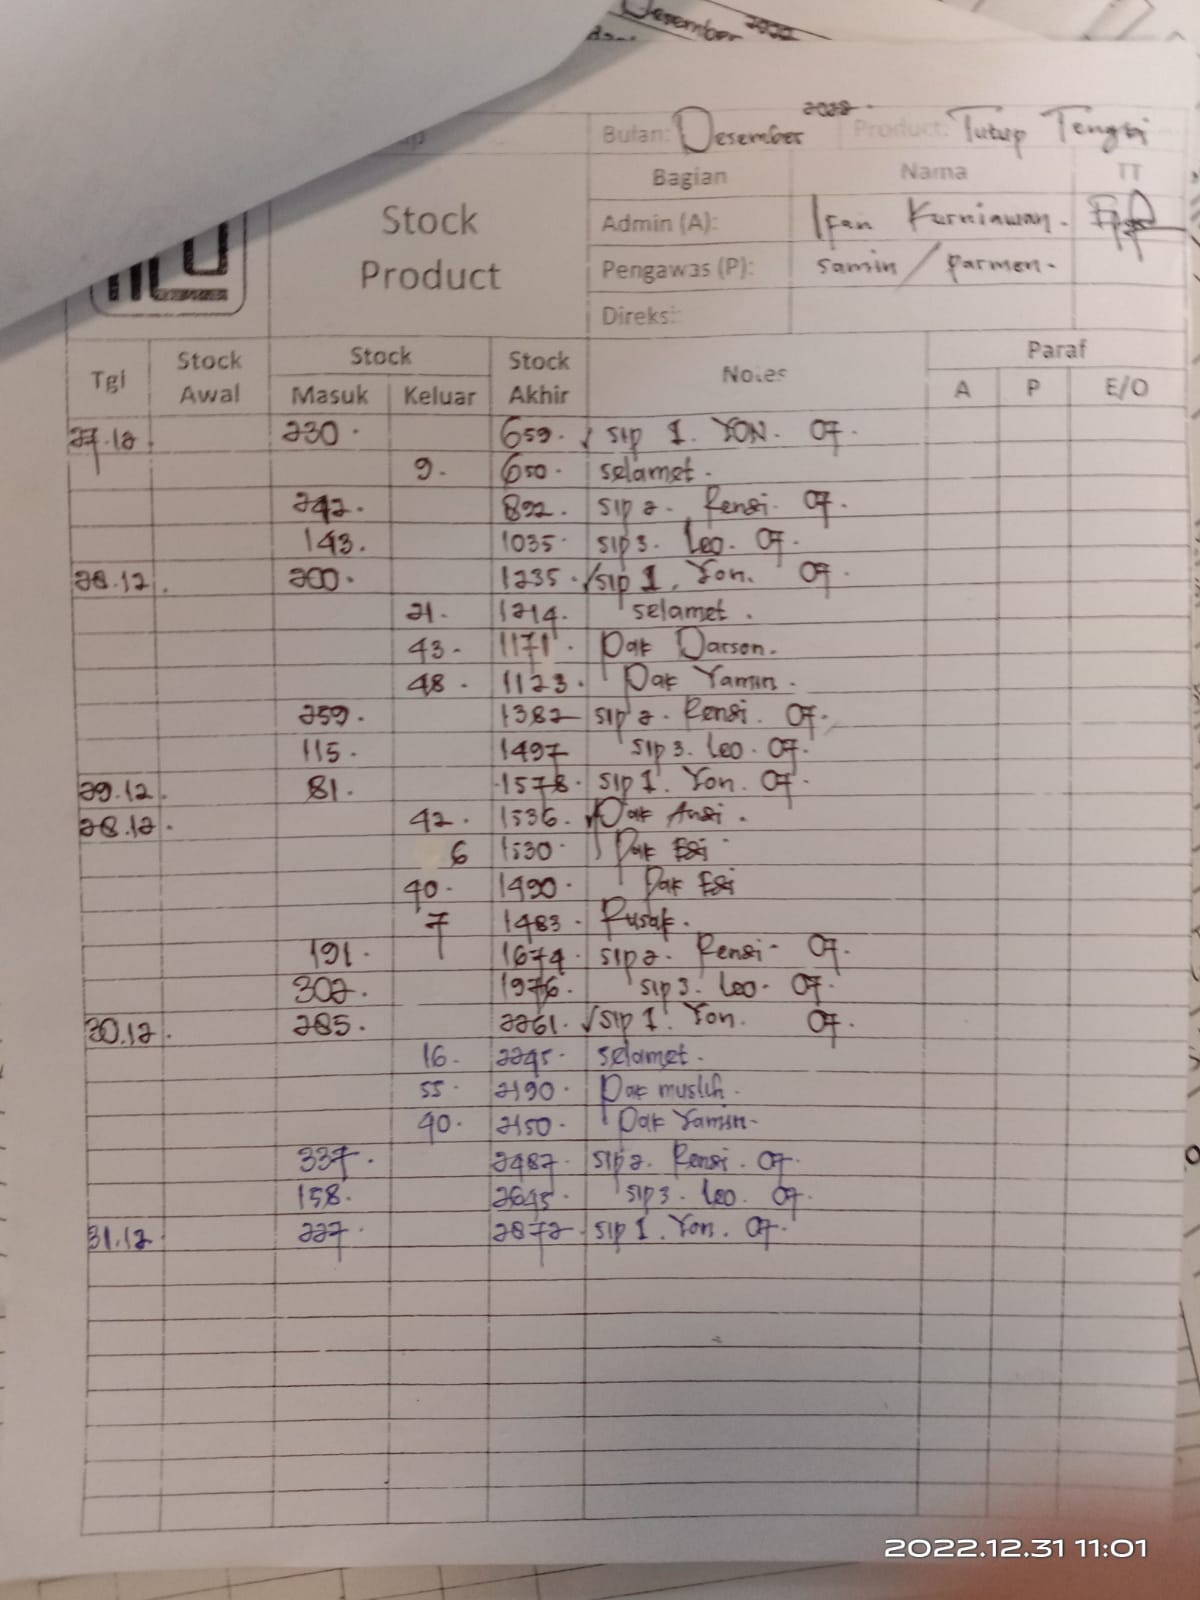 Desember 2022
Bulan: Desember 2022. Product: Tutup Tengki
Stock Product
Bagian Nama TT
Admin (A): Ifan Kurniawan.
Pengawas (P): Samin / Parmen.
Direksi:
Tgl Stock Awal Stock Masuk Keluar Stock Akhir Notes Paraf A P E/O
27.12. 230. 659. √ sip 1. YON. 07.
9. 650. selamet.
242. 892. sip 2. Rensi. 07.
143. 1035. sip 3. Leo. 07.
28.12. 200. 1235. √ sip 1. Yon. 07.
21. 1214. selamet.
43. 1171. Pak Darson.
48. 1123. Pak Yamin.
259. 1382 sip 2. Rensi. 07.
115. 1497 sip 3. Leo. 07.
29.12. 81. 1578. sip 1. Yon. 07.
28.12. 42. 1536. √ Pak Ansi.
6 1530. Pak Esi
40. 1490. Pak Esi
7 1483. Rusak.
191. 1674. sip 2. Rensi. 07.
302. 1976. sip 3. Leo. 07.
30.12. 285. 2261. √ sip 1. Yon. 07.
16. 2245. selamet.
55. 2190. Pak muslih.
40. 2150. Pak Yamin.
337. 2487. sip 2. Rensi. 07.
158. 2645. sip 3. Leo. 07.
31.12. 227. 2872. sip 1. Yon. 07.
2022.12.31 11:01